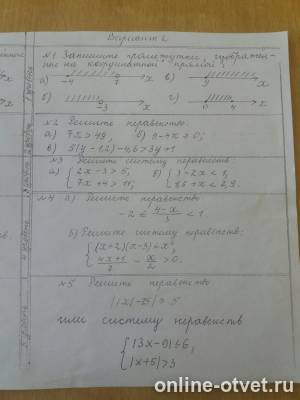 Вариант 2
№1 Запишите промежутки, изображен-
ные на координатной прямой:
а) -4 7 x в) x
б) -3 x г) 0 4 x
№2 Решите неравенство:
а) 7x > 49, б) 8-4x ≥ 0;
в) 5(y-1,2)-4,6 > 3y+1
№3 Решите систему неравенств
а) { 2x-3 > 5; б) { 3-2x < 1,
7x+4 > 11; 1,6+x < 2,9.
№4 а) Решите неравенство
-2 ≤ (4-x)/3 < 1
б) Решите систему неравенств:
{ (x+2)(x-3) < x²,
(4x+1)/7 - x/2 > 0.
№5 Решите неравенство
или систему неравенств
|x+5| > 3
online-otvet.ru